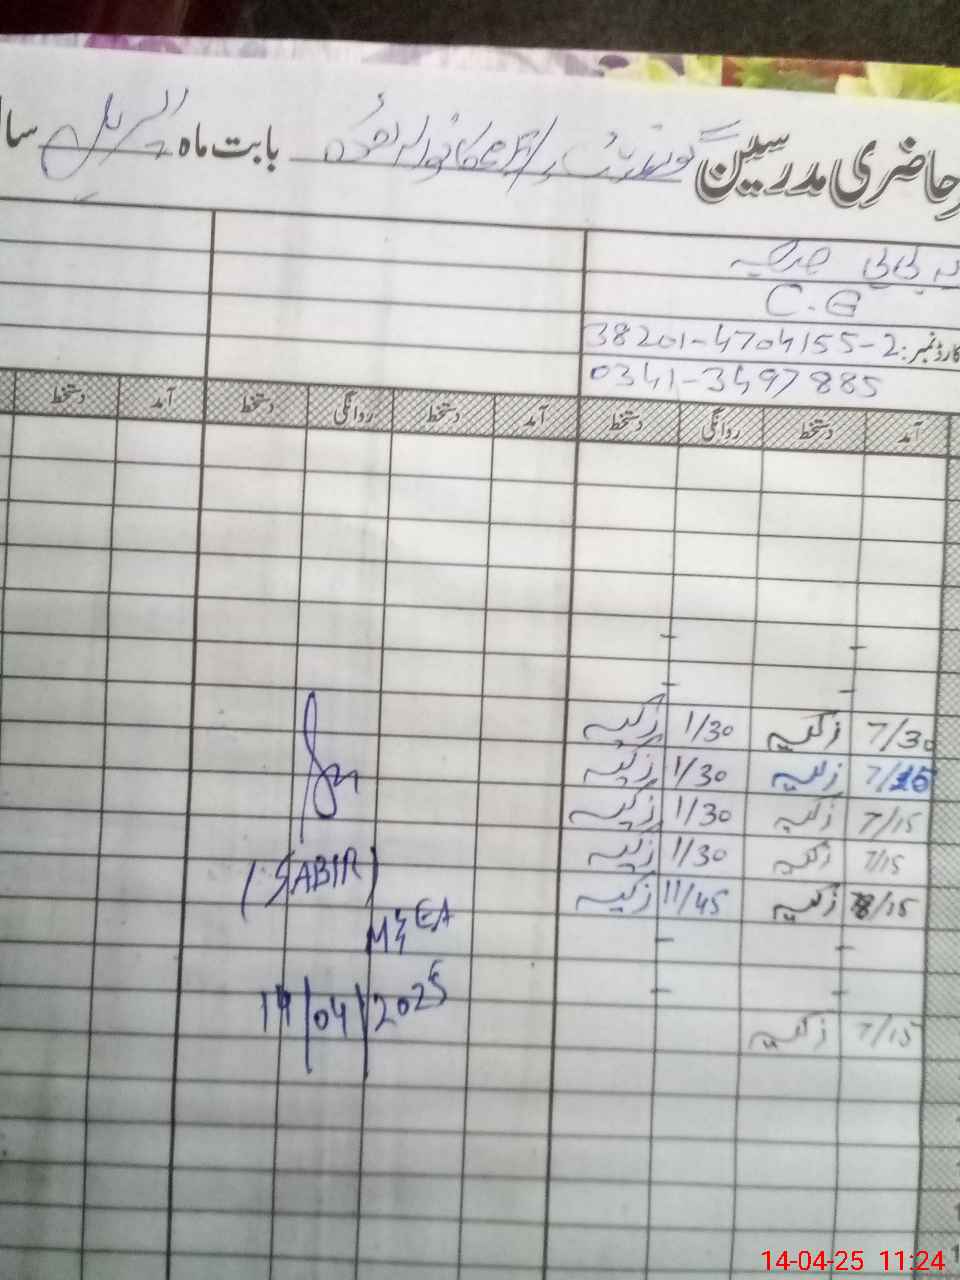 حاضری مدرسین گورنمنٹ بابت ماہ اپریل
C.G
کارڈ نمبر: 38201-4704155-2
0341-3497885
آمد دستخط روانگی دستخط آمد دستخط روانگی دستخط آمد دستخط
7/30 زکیہ 1/30 زکیہ
زکیہ 1/30 زکیہ
7/15 زکیہ 1/30 زکیہ
7/15 زکیہ 1/30 زکیہ
8/15 زکیہ 11/45 زکیہ
7/15 زکیہ
(SABIR)
M&EA
14/04/2025
14-04-25 11:24